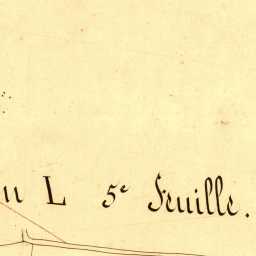 n L 5e Feuille.